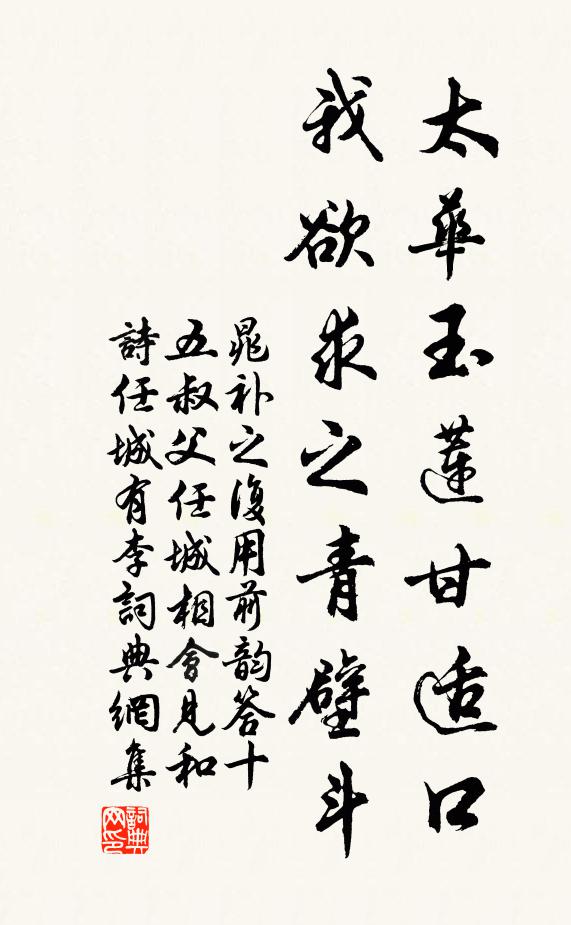 太華玉蓮甘适口
我欲求之青壁斗
晁补之復用前韵答十
五叔父任城相會見和
詩任城有李詞典網集
詞典网印